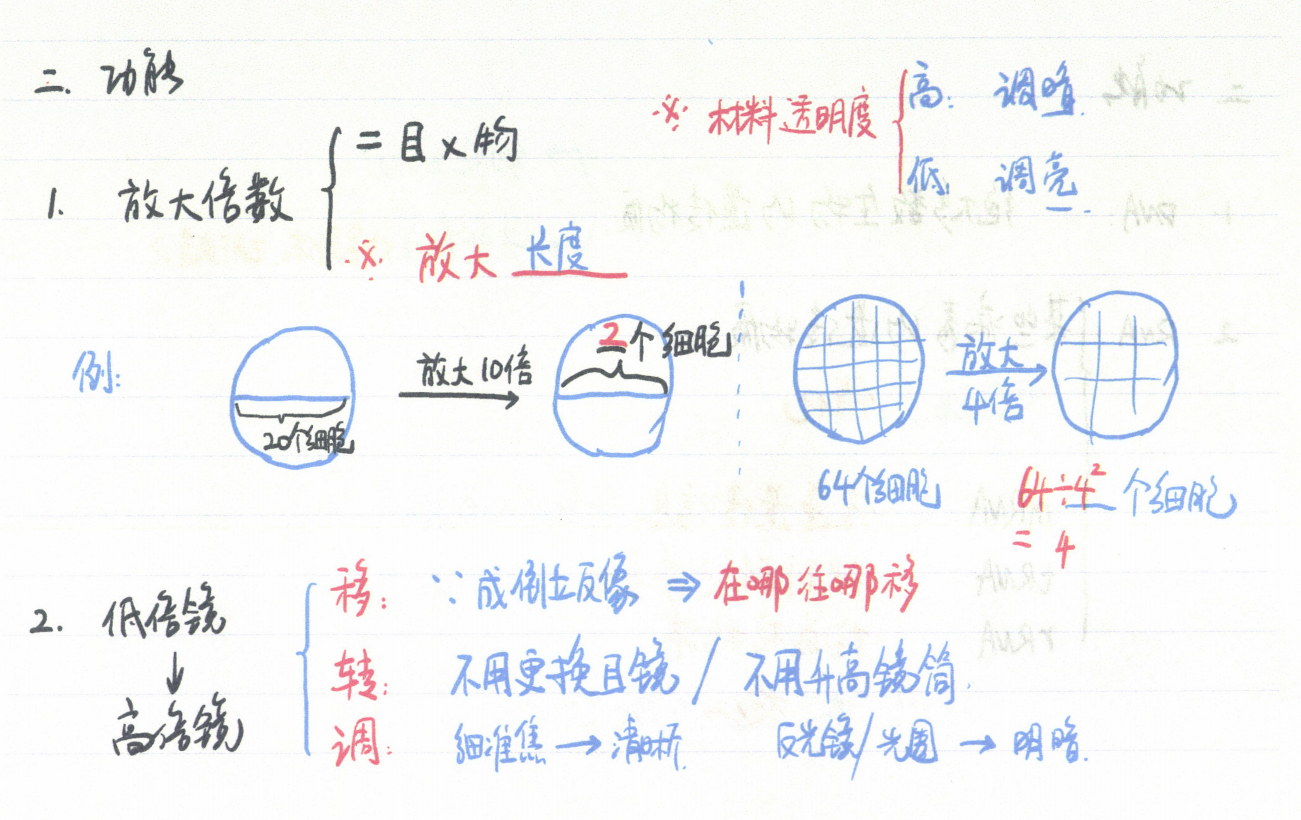 二. 功能
※ 材料透明度
高: 调暗.
低: 调亮.
1. 放大倍数
= 目×物
※ 放大 长度
例:
20个细胞
放大10倍
2个细胞
64个细胞
放大
4倍
64÷4² 个细胞
= 4
2. 低倍镜
↓
高倍镜
移: ∵成倒立反像 ⇒ 在哪往哪移
转: 不用更换目镜 / 不用升高镜筒.
调: 细准焦 → 清晰. 反光镜/光圈 → 明暗.